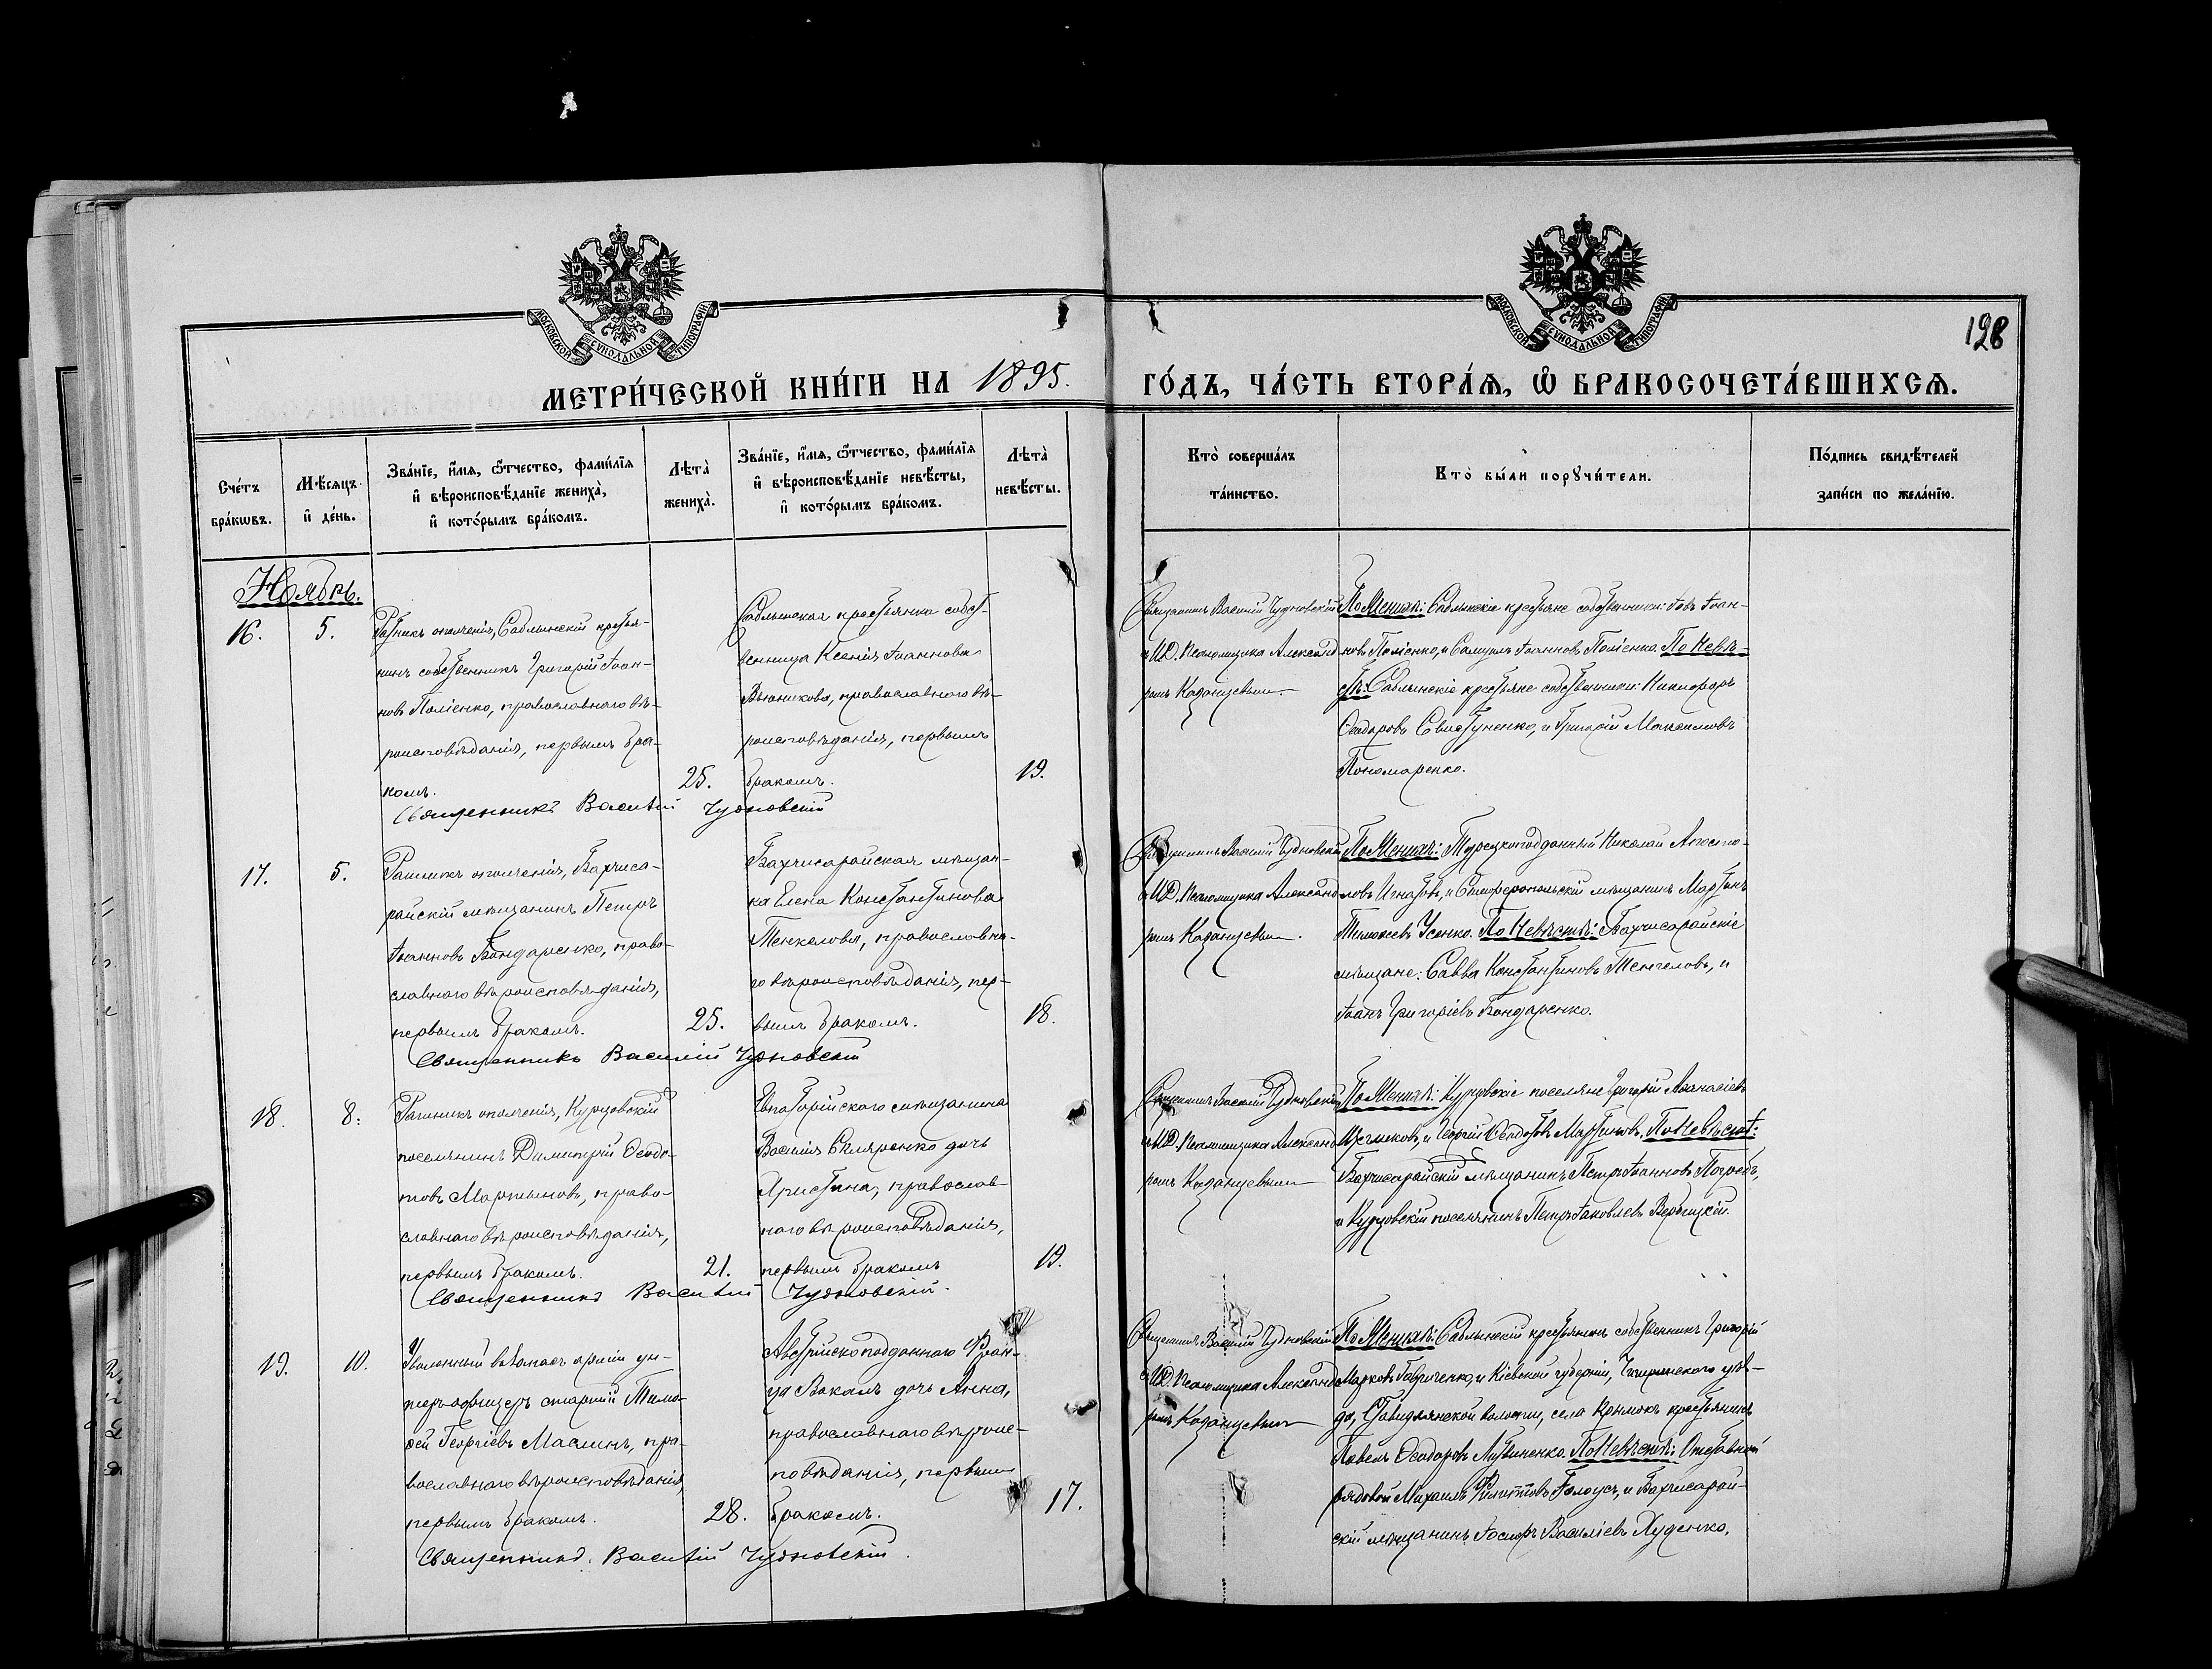 МОСКОВСКОЙ СУНОДАЛЬНОЙ ТИПОГРАФІИ.
МОСКОВСКОЙ СУНОДАЛЬНОЙ ТИПОГРАФІИ.
128
МЕТРИ́ЧЕСКОЙ КНИ́ГИ НА 1895. ГО́ДЪ, ЧА́СТЬ ВТОРА́Ѧ, Ѡ҆ БРАКОСОЧЕТА́ВШИХСѦ.
Сче́тъ
бра́кѡвъ.
Мѣ́сѧцъ
и҆ де́нь.
Зва́нїе, и҆́мѧ, ѻ҆́тчество, фамѝлїѧ
и҆ вѣроисповѣ́данїе жениха̀,
и҆ кото́рымъ бра́комъ.
Лѣта̀
жениха̀.
Зва́нїе, и҆́мѧ, ѻ҆́тчество, фами́лїѧ
и҆ вѣроисповѣ́данїе невѣ́сты,
и҆ кото́рымъ бра́комъ.
Лѣта̀
невѣ́сты.
Кто̀ соверша́лъ
та́инство.
Кто̀ бы́ли порꙋчи́тели.
По́дпись свидѣ́телей
за́писи по жела́нїю.
Ноябрь.
16.
5.
Ратникъ ополченія, Саблынскій крестья-
нинъ собственникъ Григорій Іоан-
новъ Поліенко, православнаго вѣ-
роисповѣданія, первымъ бра-
комъ.
25.
Саблынская крестьянка собст-
венница Ксенія Іоаннова
Вьюникова, православнаго вѣ-
роисповѣданія, первымъ
бракомъ.
19.
Священникъ Василій Чудновскій
Священникъ Василій Чудновскій
и И.Д. Псаломщика Александ-
ромъ Казанцевымъ.
По Женихѣ: Саблынскіе крестьяне собственники: Іовъ Іоан-
новъ Поліенко, и Самуилъ Іоанновъ Поліенко. По Невѣ-
стѣ: Саблынскіе крестьяне собственники: Никифоръ
Ѳеодоровъ Свистуненко, и Григорій Максимовъ
Пономаренко.
17.
5.
Ратникъ ополченія, Бахчиса-
райскій мѣщанинъ Петръ
Іоанновъ Бондаренко, право-
славнаго вѣроисповѣданія,
первымъ бракомъ.
25.
Бахчисарайская мѣщан-
ка Елена Константинова
Тенкелова, православна-
го вѣроисповѣданія, пер-
вымъ бракомъ.
18.
Священникъ Василій Чудновскій
Священникъ Василій Чудновскій
и И.Д. Псаломщика Александ-
ромъ Казанцевымъ.
По Женихѣ: Турецкоподданный Николай Апосто-
ловъ Игнатовъ, и Симферопольскій мѣщанинъ Мартинъ
Тимоѳеевъ Усенко. По Невѣстѣ: Бахчисарайскіе
мѣщане: Савва Константиновъ Тенгеловъ, и
Іоанъ Григоріевъ Бондаренко.
18.
8.
Ратникъ ополченія, Курцовскій
поселянинъ Димитрій Ѳеодо-
товъ Мартыновъ, право-
славнаго вѣроисповѣданія,
первымъ бракомъ.
21.
Евпаторійскаго мѣщанина
Василія Скляренко дочь
Христина, православ-
наго вѣроисповѣданія,
первымъ бракомъ
19.
Священникъ Василій Чудновскій.
Священникъ Василій Чудновскій
и И.Д. Псаломщика Александ-
ромъ Казанцевымъ
По Женихѣ: Курцовскіе поселяне Григорій Аѳанасіевъ
и Георгій Ѳеодотовъ Мартыновъ. По Невѣстѣ:
Бахчисарайскій мѣщанинъ Петръ Іоанновъ
и Курцовскій поселянинъ Петръ Іаковлевъ Вербицкій.
19.
10.
Уволенный въ запасъ арміи ун-
теръ-офицеръ старшій Тимо-
ѳей Георгіевъ Маслинъ, пра-
вославнаго вѣроисповѣданія,
первымъ бракомъ.
28.
Австрійскоподданнаго Фран-
ца Вокалъ дочь Анна,
православнаго вѣроис-
повѣданія, первымъ
бракомъ.
17.
Священникъ Василій Чудновскій.
Священникъ Василій Чудновскій
и И.Д. Псаломщика Александ-
ромъ Казанцевымъ
По Женихѣ: Саблынскій крестьянинъ собственникъ Григорій
Марковъ Гавриченко, и Кіевской губерніи, Чигиринскаго уѣз-
да, волости, села Крымокъ крестьянинъ
Павелъ Ѳеодоровъ Литвиненко. По Невѣстѣ: Отставной
рядовой Михаилъ Филипповъ Голоусъ, и Бахчисарай-
скій мѣщанинъ Іосифъ Василіевъ Худенко.